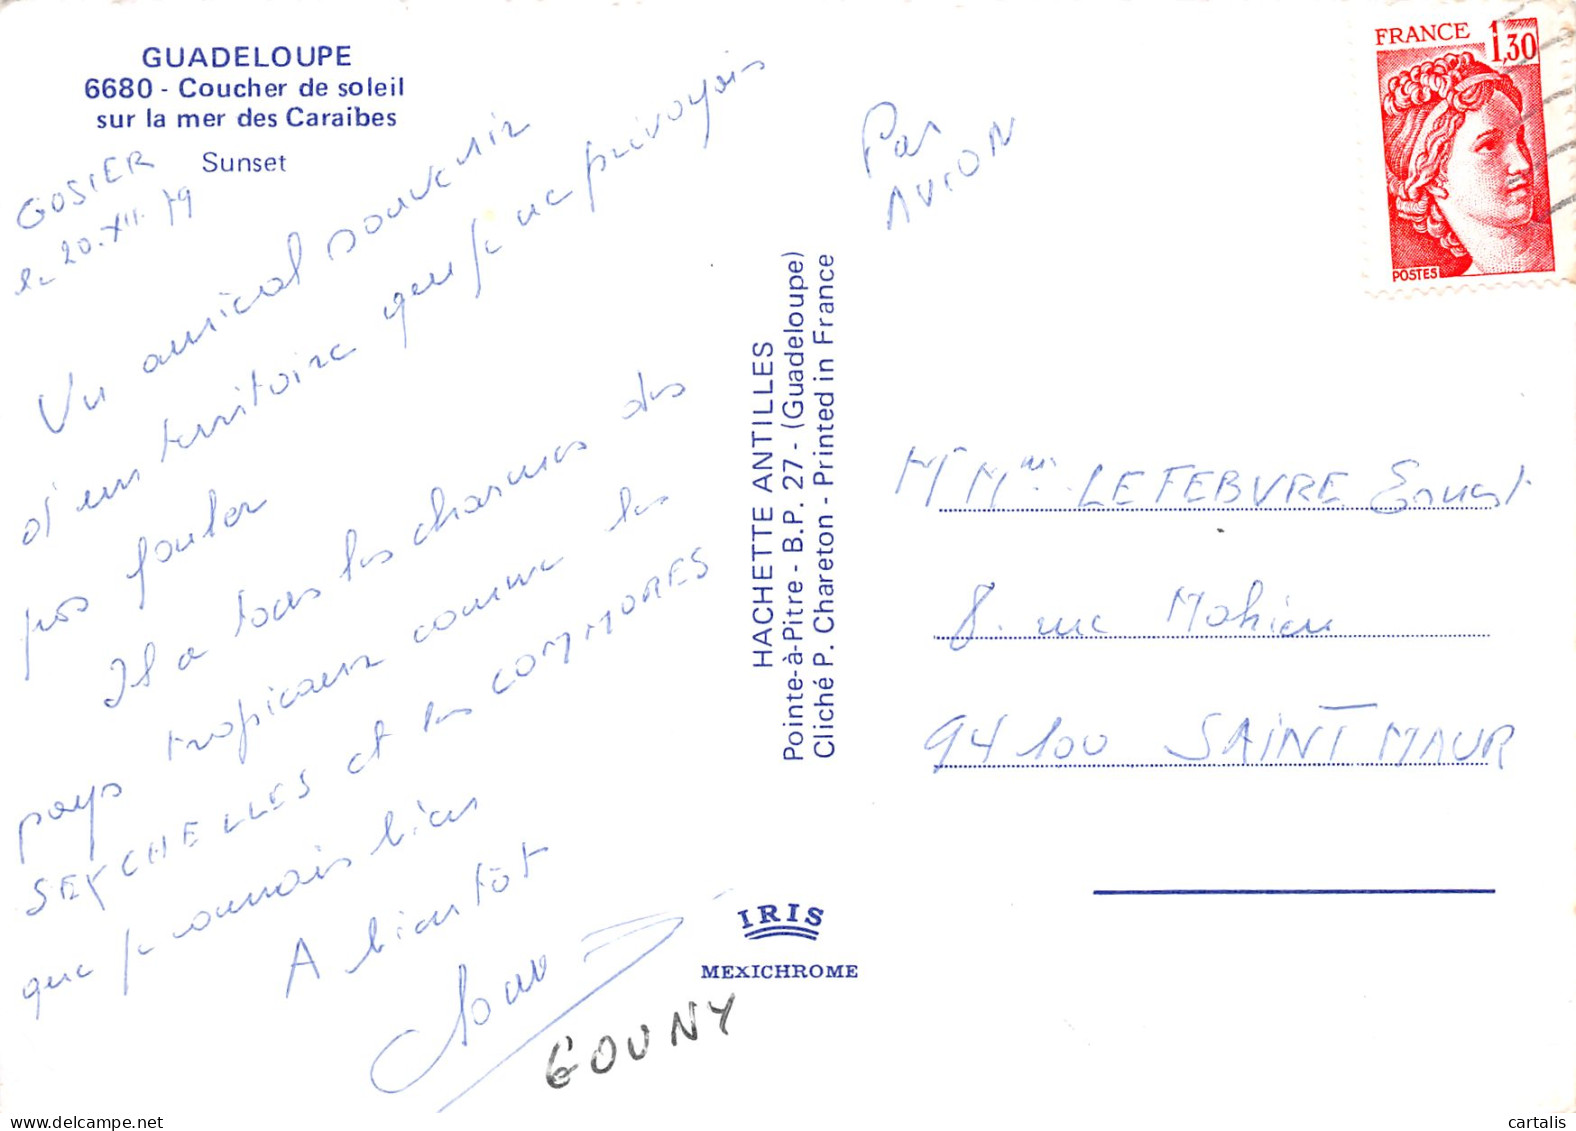 GUADELOUPE
6680 - Coucher de soleil
sur la mer des Caraibes
Sunset
GOSIER
le 20.XII.79
Un amical souvenir
d'un territoire que je ne prévoyais
pas fouler
Il a tous les charmes des
pays tropicaux comme les
SEYCHELLES et les COMMORES
que je connais bien
A bientôt
GOUNY
HACHETTE ANTILLES
Pointe-à-Pitre - B.P. 27 - (Guadeloupe)
Cliché P. Chareton - Printed in France
IRIS
MEXICHROME
Par
AVION
FRANCE 1,30
POSTES
Mr Mme LEFEBVRE Ernest
8. rue Mahieu
94100 SAINT MAUR
cartalis